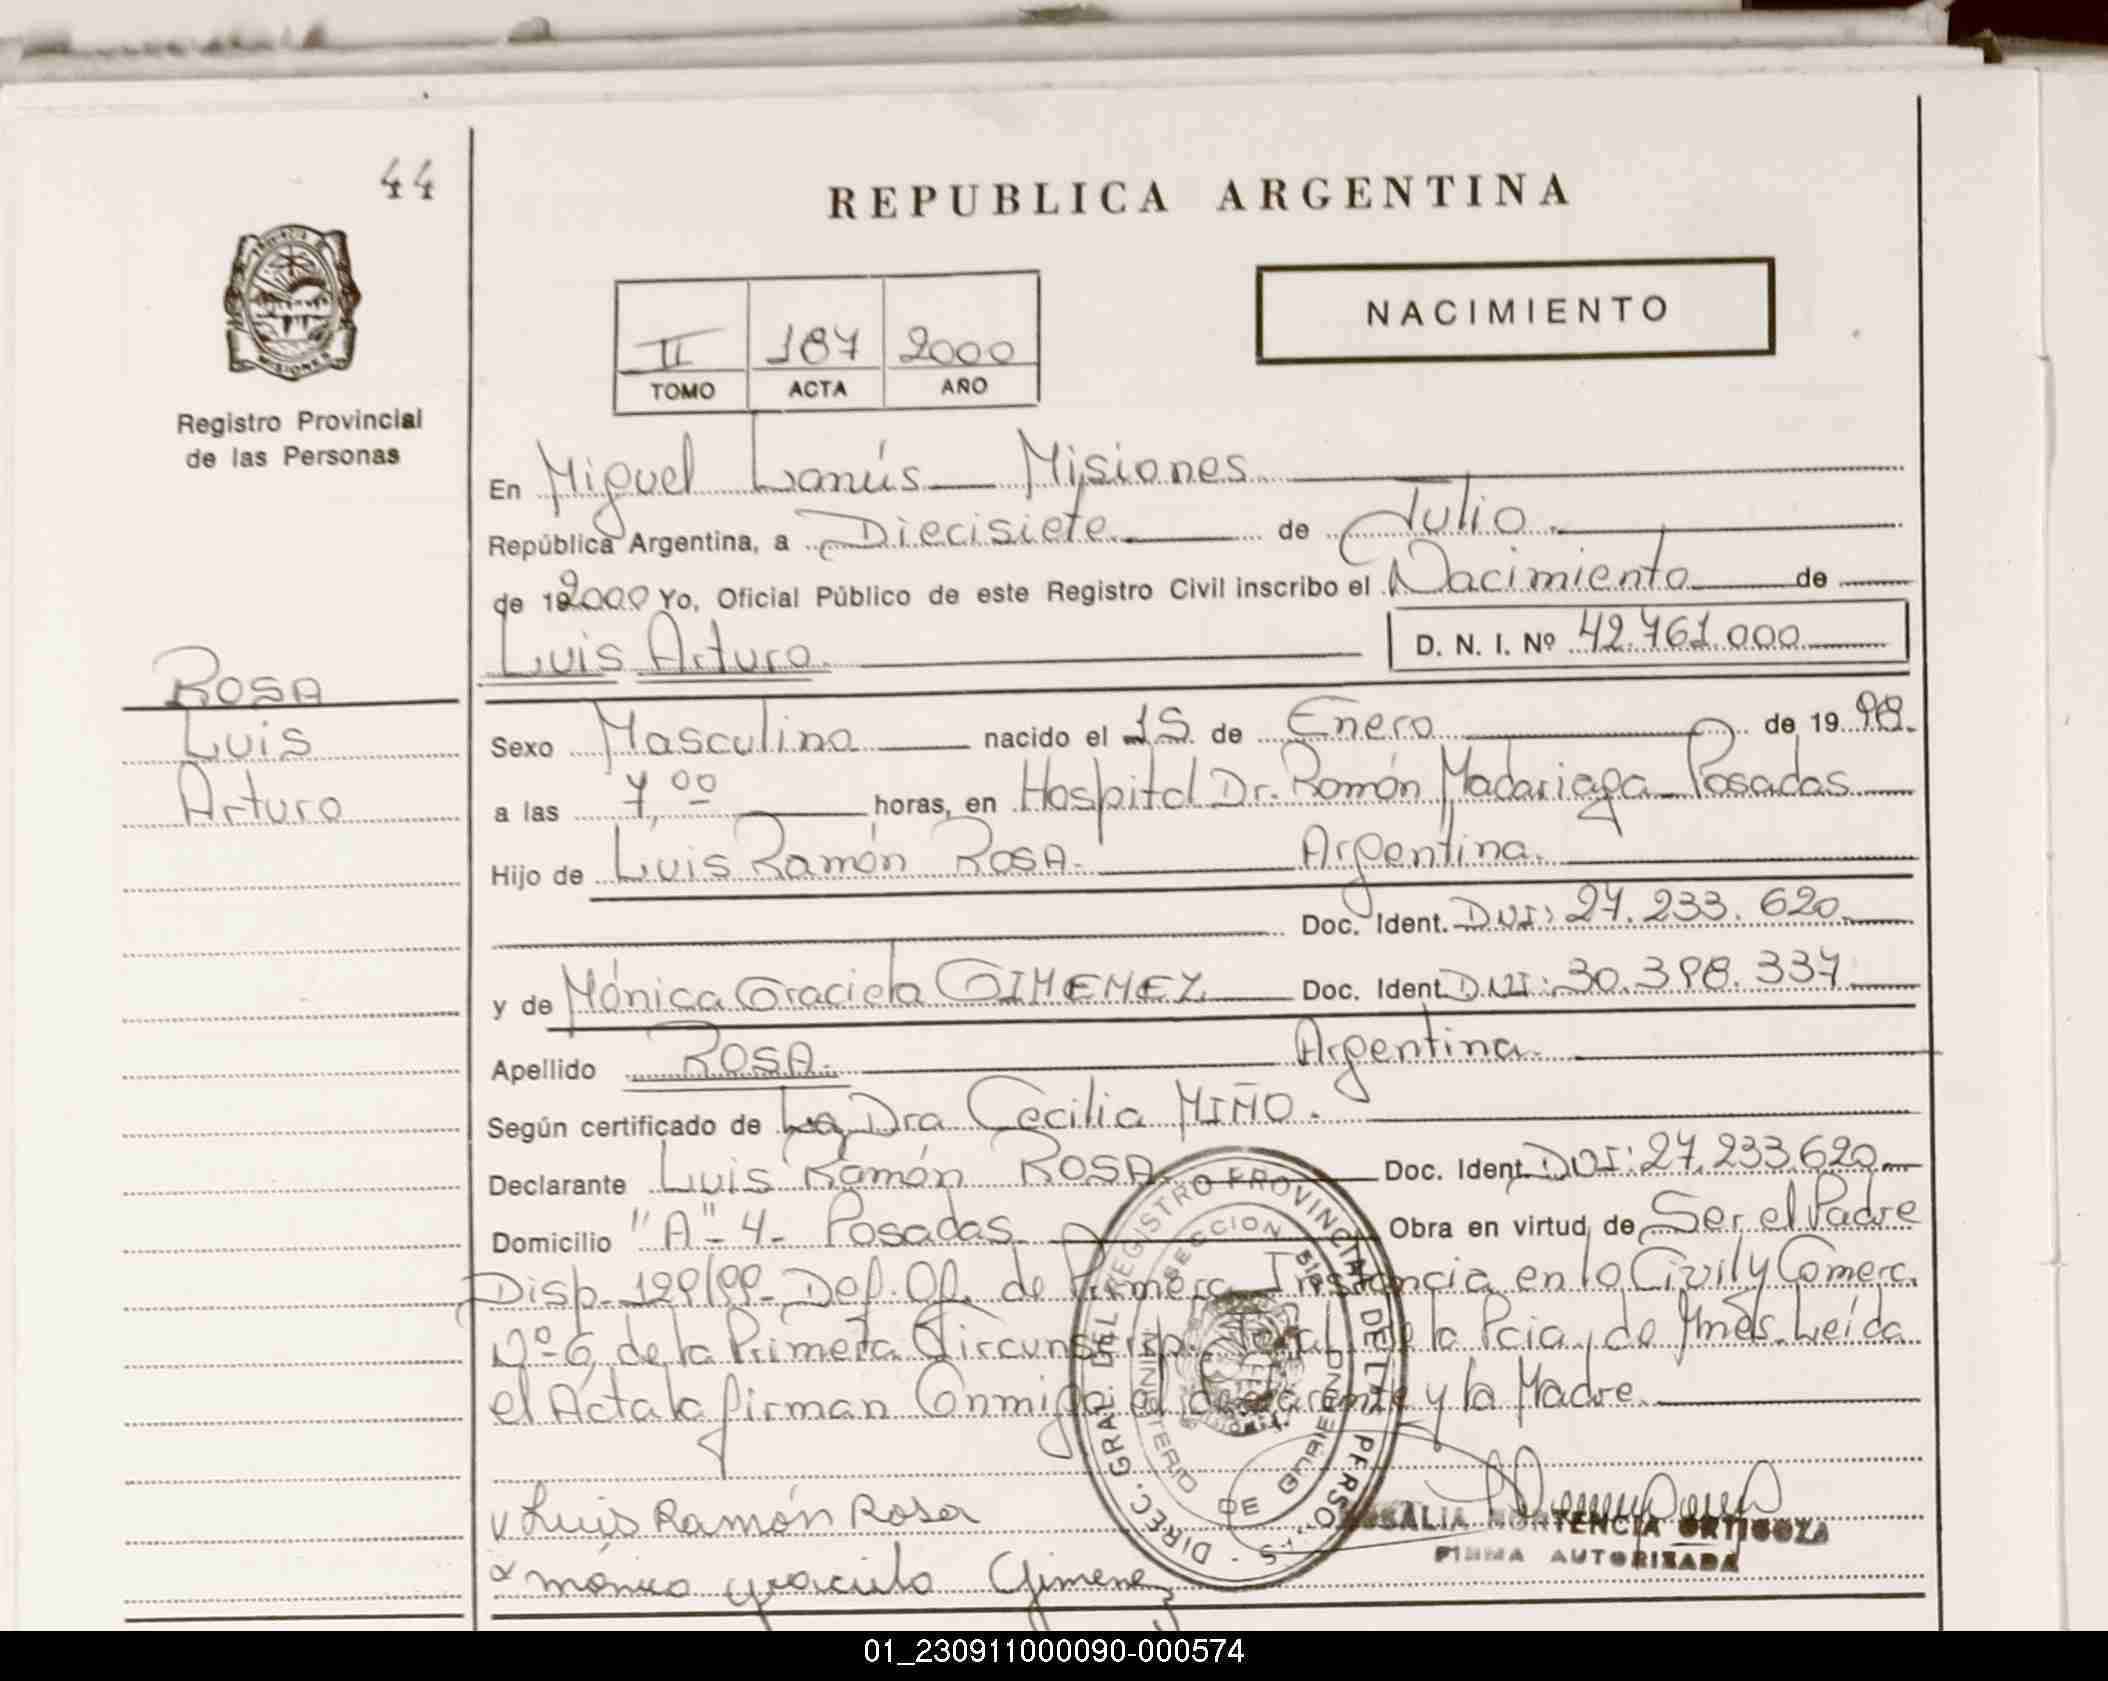 44
REPUBLICA ARGENTINA
NACIMIENTO
II 187 2000
TOMO ACTA AÑO
MISIONES
Registro Provincial
de las Personas
En Miguel Lanús Misiones
República Argentina, a Diecisiete de Julio.
de 192000 Yo, Oficial Público de este Registro Civil inscribo el Nacimiento de
Luis Arturo. D. N. I. Nº 42.761.000
ROSA
Luis
Arturo
Sexo Masculino nacido el 15 de Enero de 19 98.
a las 7,00 horas, en Hospital Dr. Ramón Madariaga - Posadas
Hijo de Luis Ramón ROSA. Argentina.
Doc. Ident. DNI: 27.233.620
y de Mónica Graciela GIMENEZ Doc. Ident. DNI: 30.398.337
Apellido ROSA. Argentina.
Según certificado de La Dra Cecilia MIÑO.
Declarante Luis Ramón ROSA Doc. Ident. DNI: 27.233.620
Domicilio "A"-4- Posadas Obra en virtud de Ser el Padre
Disp. 129/99- Def. Of. de Primera Instancia en lo Civil y Comerc.
Nº 6 de la Primera Circunscrip. de la Pcia. de Mnes. Leída
el Acta la firman Conmigo el declarante y la Madre.
DIREC. GRAL. DEL REGISTRO PROVINCIAL DE LAS PERSONAS
SECCION
MINISTERIO DE GOBIERNO
Luis Ramón Rosa
ROSALIA HORTENCIA ORTIGOZA
FIRMA AUTORIZADA
Mónica Graciela Gimenez
01_230911000090-000574